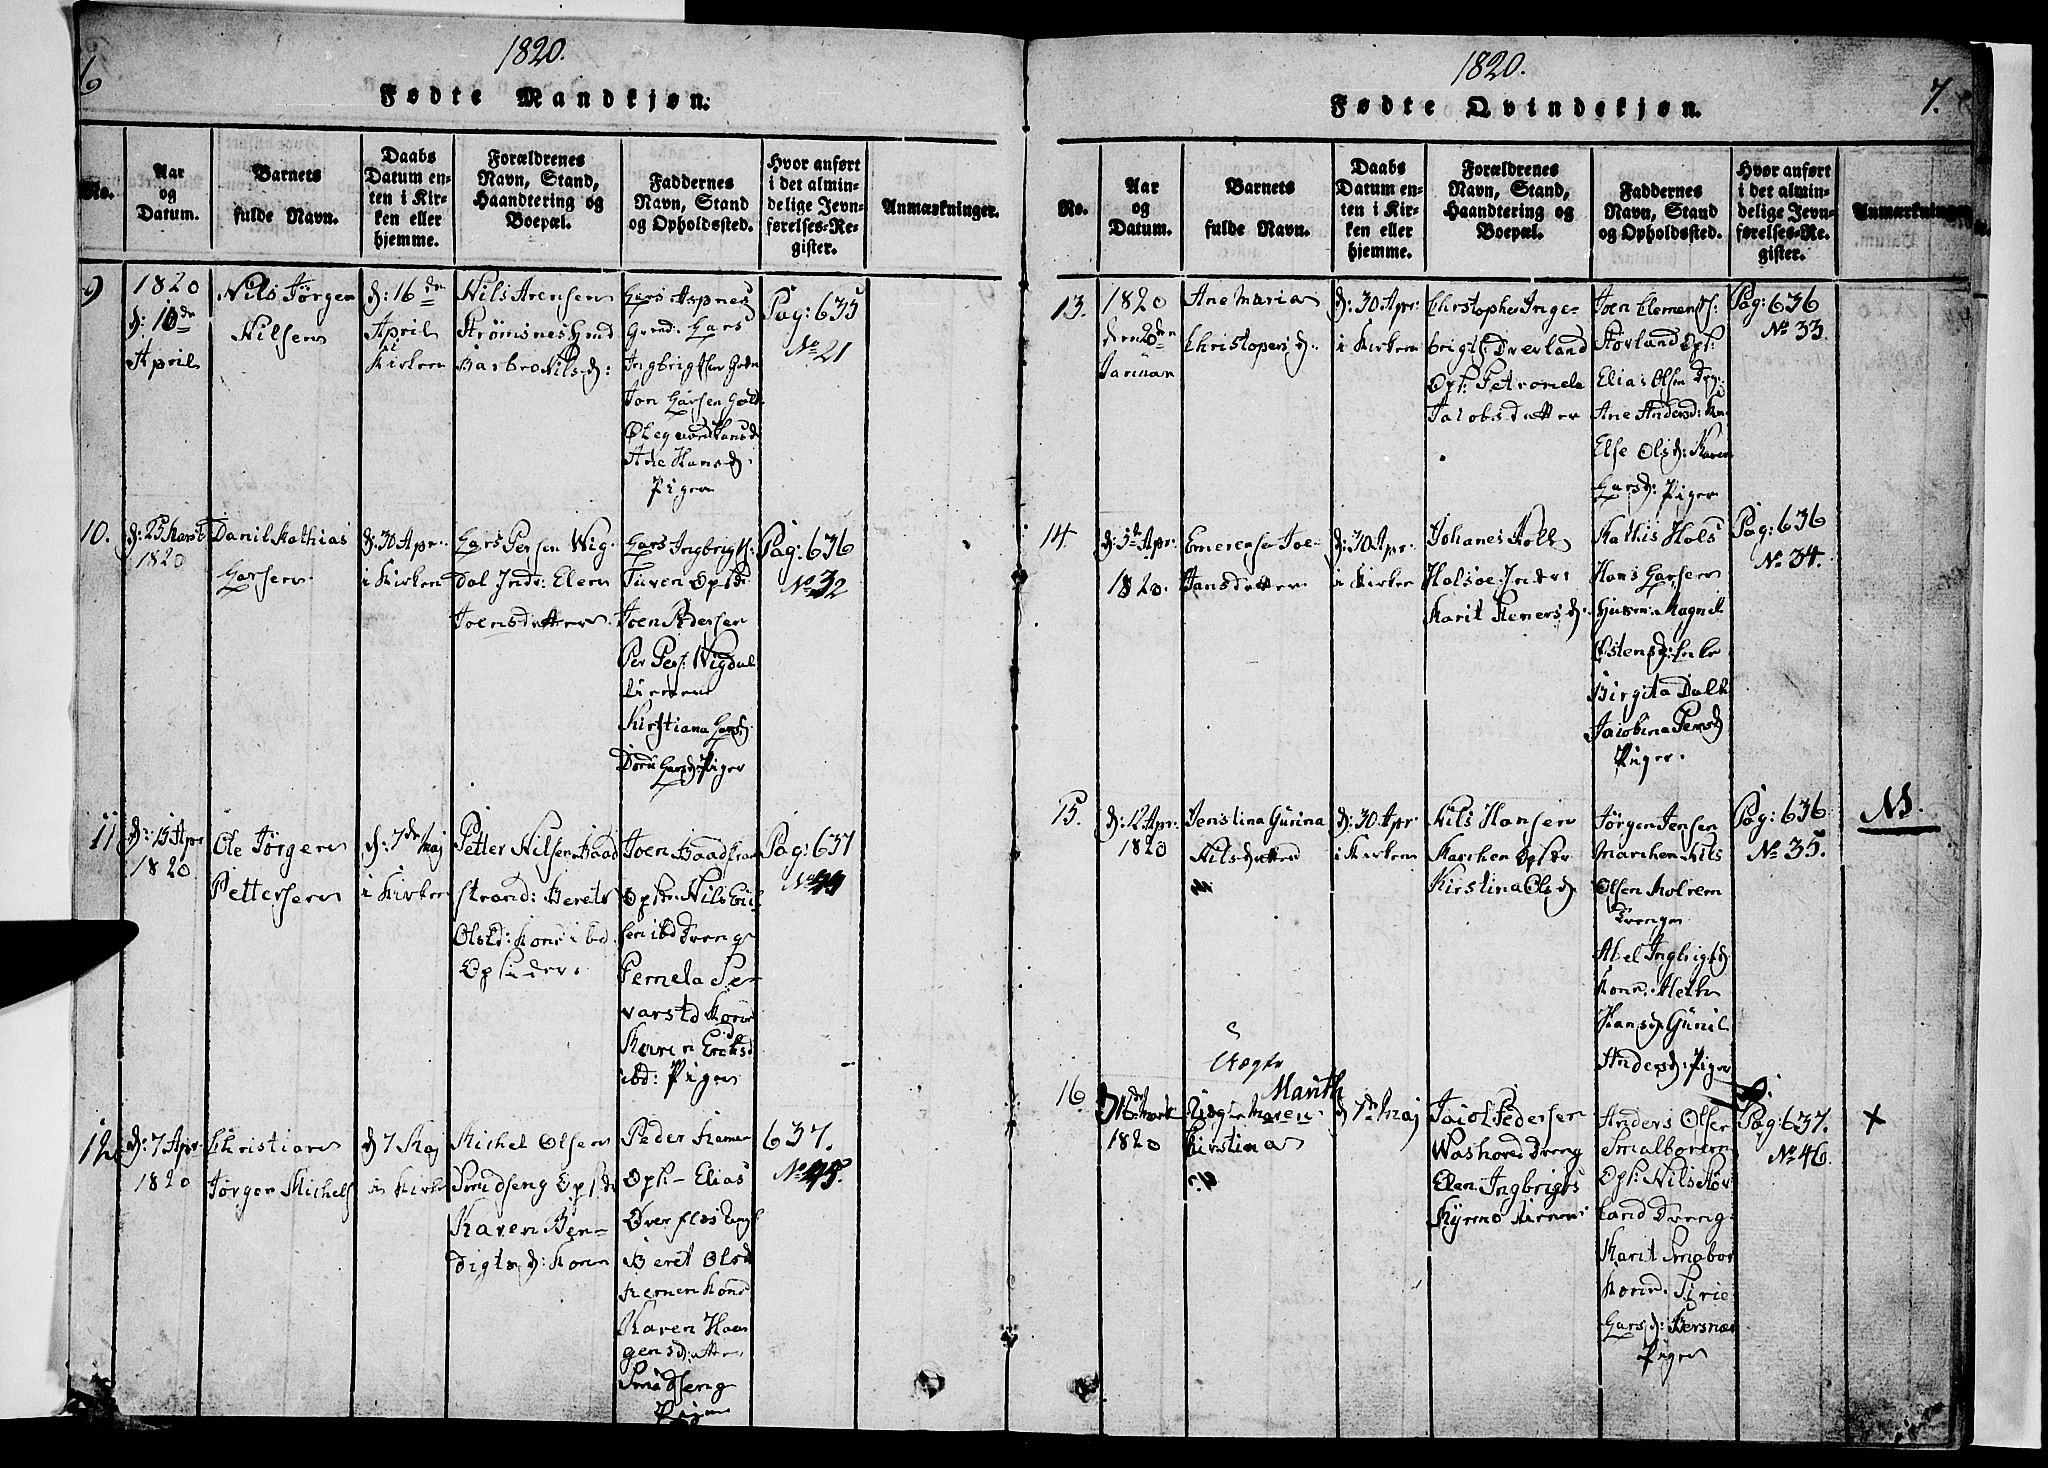 6
1820.
Fødte Mandkjøn.
No.
Aar
og
Datum.
Barnets
fulde Navn.
Daabs
Datum en-
ten i Kir-
ken eller
hjemme.
Forældrenes
Navn, Stand,
Haandtering og
Boepæl.
Faddernes
Navn, Stand
og Opholdssted.
Hvor anført
i det almin-
delige Jevn-
førelses-Re-
gister.
Anmærkninger.
9
1820
d: 10de
April
Nils Jørgen
Nilsen
d: 16de
April
i
Kirken
Nils Arensen
Strømsnes
Barbro Nilsd:
Lars
Lars
Ingbrigtsen
Jon Larsen
Hansd
Ane Hansd:
Piger
Pag: 635
No 21
10.
d: 25 Marts
1820
Danil Mathias
Larsen.
d: 30 Apr:
i Kirken
Lars Persen Wig-
Dal Indr: Elen
Joensdatter.
Lars Ingbrigts:
Turen Opsidr
Joen Pedersen
Per Pers: Wigdal
Kirstiana Larsd:
Larsd: Piger
Pag: 636
No 32
11
d: 15 Apr
1820
Ole Jørgen
Pettersen
d: 7de Maj
i Kirken
Petter Nilsen Baad
strand: Berete
Olsd: Kone ibd
Opsider.
Joen Baadstran
Opsr: Nils Eric
sen ibd Dreng
Pernela Se-
varstd Kone
Karen Ericksd
ibd: Piger
Pag: 637
No 44
12
d: 7 Apr
1820
Christian
Jørgen Michels
d 7 Maj
i Kirke
Michel Olsen
Smedseng Opsidr
Karen Ben-
digts d: Kone
Peder
Ops- Elias
Øverflos
Beret Olsd
Kone
Karen Haa
gensdatter
Smedseng
Piger
637.
No 45.
7.
1820.
Fødte Qvindekjøn.
No.
Aar
og
Datum.
Barnets
fulde Navn.
Daabs
Datum en-
ten i Kir-
ken eller
hjemme.
Forældrenes
Navn, Stand,
Haandtering og
Boepæl.
Faddernes
Navn, Stand
og Opholdssted.
Hvor anført
i det almin-
delige Jevn-
førelses-Re-
gister.
Anmærkninger
13.
1820
den 20den
Januar
Ane Maria
Christopersd:
d: 30 Apr:
i Kirken
Christopher Inge-
brigts: Overland
Ops: Petronele
Jacobsdatter
Joen Clements:
Støvland Ops:
Elias Olsen
Ane Andersd:
Else Olsd: Karen
Larsd: Piger
Pag: 636
No 33.
14.
d: 5te Apr:
1820.
Emerense Jo-
hansdatter
d: 30 Apr:
i Kirken
Johanes Moll
Holsoe Inder:
Marit Steners d:
Mathis Hols
Hans Larsen
Magnil
Østensd: Enke
Birgita Dall
Jacobina Persd
Piger.
Pag: 636
No 34.
15.
d: 12 Apr.
1820
Jenstina Gurina
Nilsdatter
d: 30 Apr
i Kirken
Nils Hansen
Opsidr
Kirstina Ols d.
Jørgen Jensen
Nils
Olsen Molrem
Drenger
Abel Ingbrigtd
Kone. Meth
Hansd: Gunil
Andersd: Piger
Pag: 636
No 35.
NB
16.
1820
Uægte
Marith
Uægte Maren
Kirstina
d 7de Maj
Jacob Pedersen
Washoved Dreng
Elen Ingbrigts
Anders Olsen
Smalboren
Ops: Nils Støv
land Dreng:
Marit Smabor
Kone. Sirie
Lars d: Bersnæs
Piger
Pag: 637.
No 46.
X